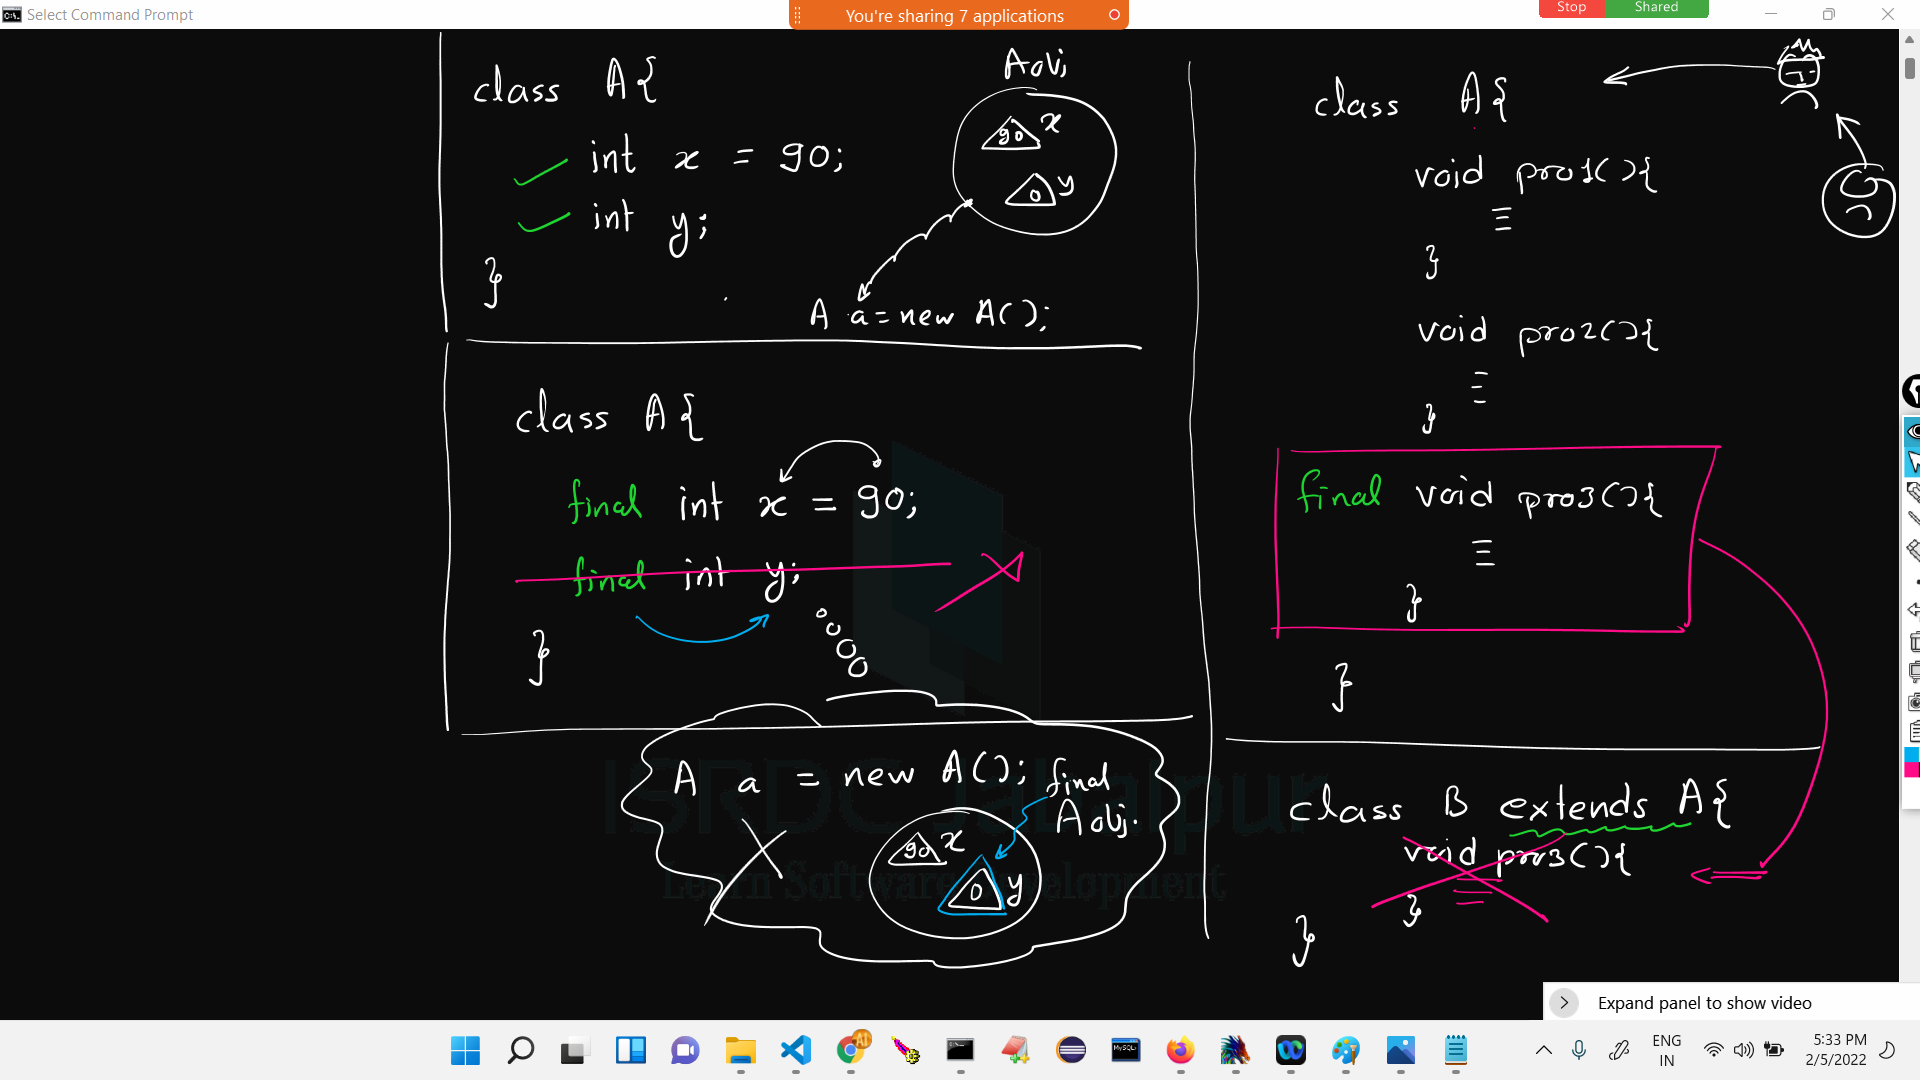 Select Command Prompt
You're sharing 7 applications
Stop
Shared
class A{
int x = 90;
int y;
}
A obj
90 x
0 y
A a = new A();
class A{
final int x = 90;
final int y;
}
A a = new A();
final
A obj.
90 x
0 y
class A{
void pro1(){
}
void pro2(){
}
final void pro3(){
}
}
class B extends A{
void pro3(){
}
}
ISRDC Jabalpur
Learn Software Development
Expand panel to show video
ENG
IN
5:33 PM
2/5/2022